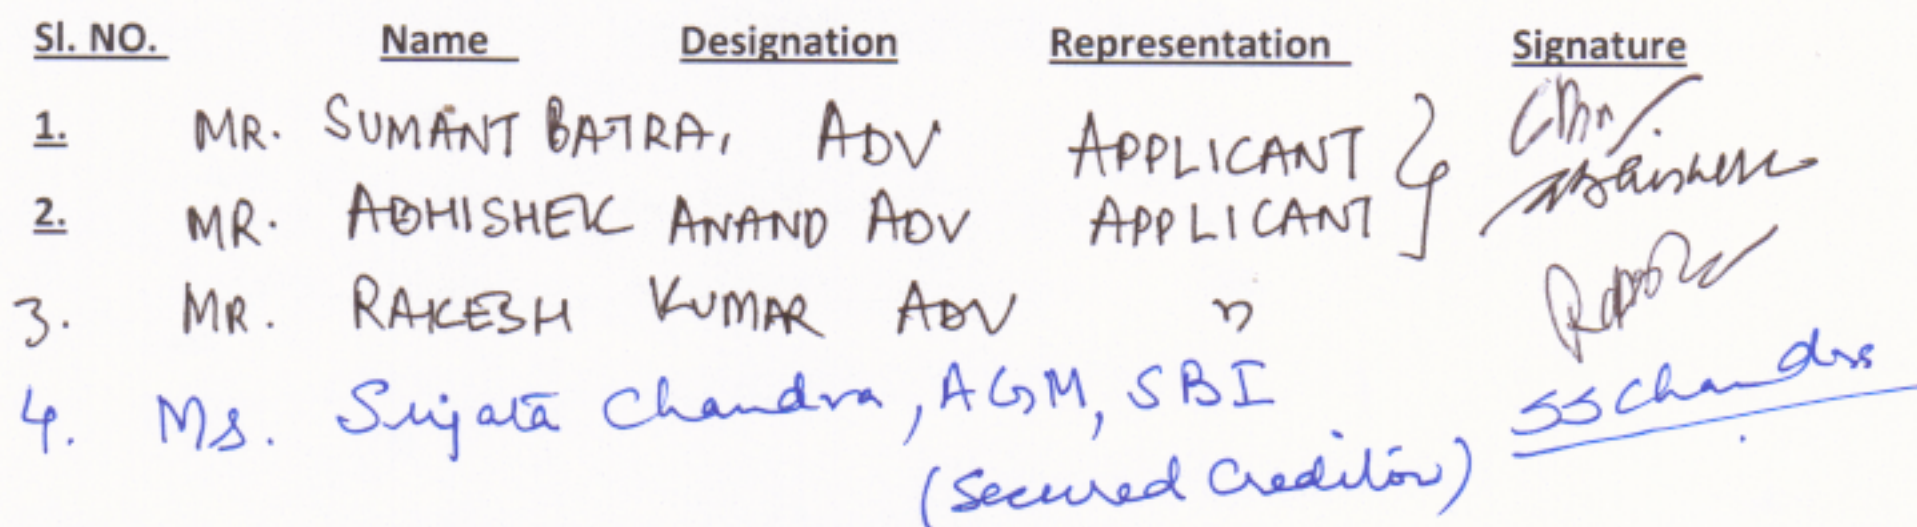 Sl. NO. Name Designation Representation Signature
1. MR. SUMANT BATRA, ADV APPLICANT
2. MR. ABHISHEK ANAND ADV APPLICANT
3. MR. RAKESH KUMAR ADV "
4. Ms. Sujata Chandra, AGM, SBI SSChandra
(Secured Creditor)